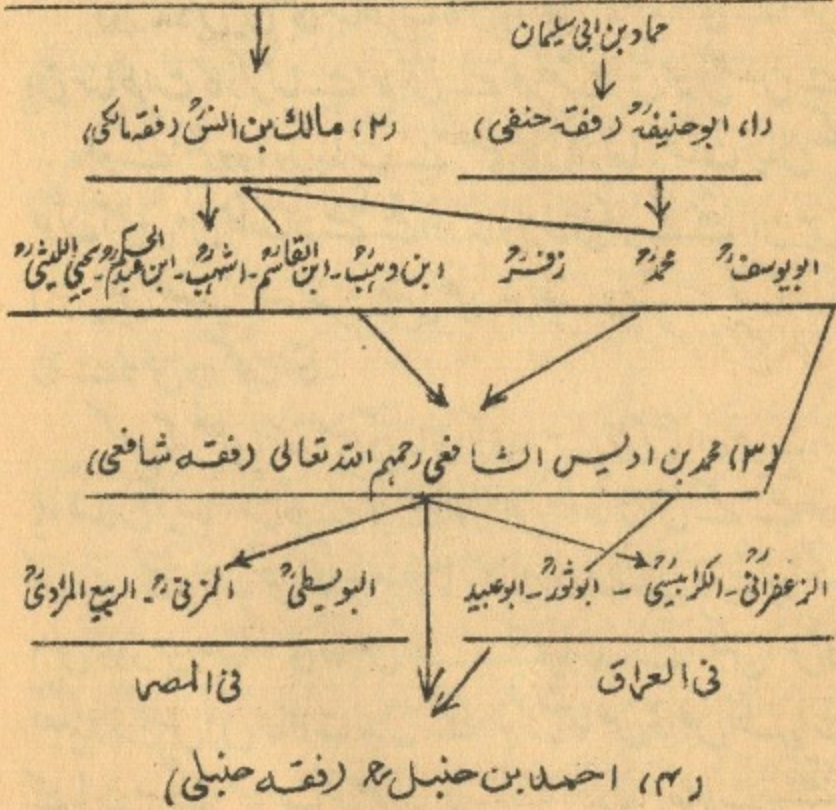 حماد بن ابی سلیمان
(۱) ابوحنیفہؒ (فقہ حنفی)
(۲) مالک بن انسؒ (فقہ مالکی)
ابویوسفؒ محمدؒ زفرؒ
ابن وہبؒ - ابن القاسمؒ - اشہبؒ - ابن عبدالحکمؒ - یحیی اللیثیؒ
(۳) محمد بن ادیس الشافعی رحمہم اللہ تعالی (فقہ شافعی)
الزعفرانیؒ - الکرابیسیؒ - ابوثورؒ - ابوعبید
البویطیؒ المزنیؒ - الربیع المرادیؒ
فی العراق
فی المصر
(۴) احمد بن حنبلؒ (فقہ حنبلی)